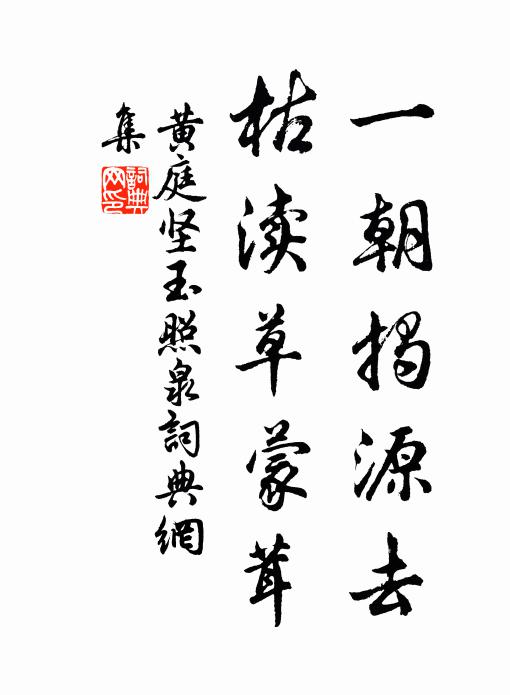 一朝揭源去
枯渎草蒙茸
黄庭坚玉照泉詞典網
集
詞典
网印